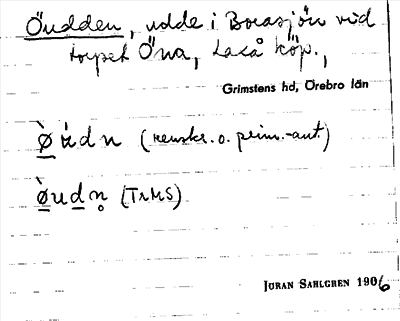 Öudden, udde i Borasjön vid
torpet Öna, Laxå köp.,
Grimstens hd, Örebro län
ø̀u̇dn (renskr. o. prim.-ant.)
ø̀udn̥ (TrMS)
JÖRAN SAHLGREN 1906